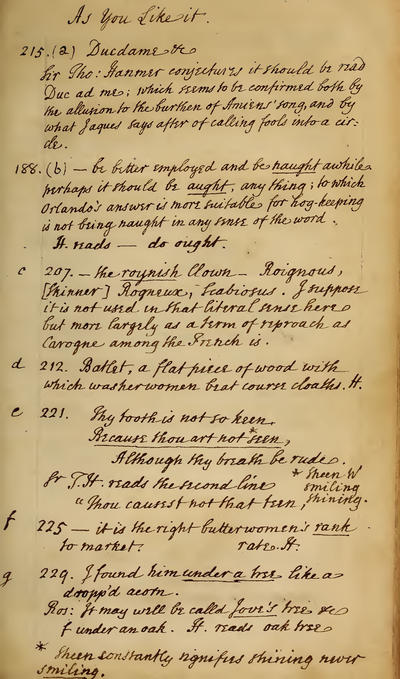 As You Like it.
215. (a) Ducdame &c
Sir Tho: Hanmer conjectures it should be read
Duc ad me; which seems to be confirmed both by
the allusion to the burthen of Amiens' song, and by
what Jaques says after of calling fools into a cir-
cle.
188. (b) — be better employed and be naught awhile
perhaps it should be aught, any thing; to which
Orlando's answer is more suitable for hog-keeping
is not being naught in any sense of the word.
H. reads — do ought.
c 207. — the roynish Clown — Roignous,
[Skinner] Rogneux, Scabiosus. I suppose
it is not used in that literal sense here
but more largely as a term of reproach as
Carogne among the French is.
d 212. Batlet, a flat piece of wood with
which washerwomen beat course cloaths. H.
e 221. Thy tooth is not so keen
Because thou art not *seen,
Although thy breath be rude.
Sr T.H. reads the second line
"Thou causest not that teen,
* Sheen W
smiling
shining.
f 225 — it is the right butterwomen's rank
to market. rate. H.
g 229. I found him under a tree like a
dropp'd acorn.
Ros: It may well be called Jove's tree &c
f under an oak. H. reads oak tree
* Sheen constantly signifies shining never
smiling.